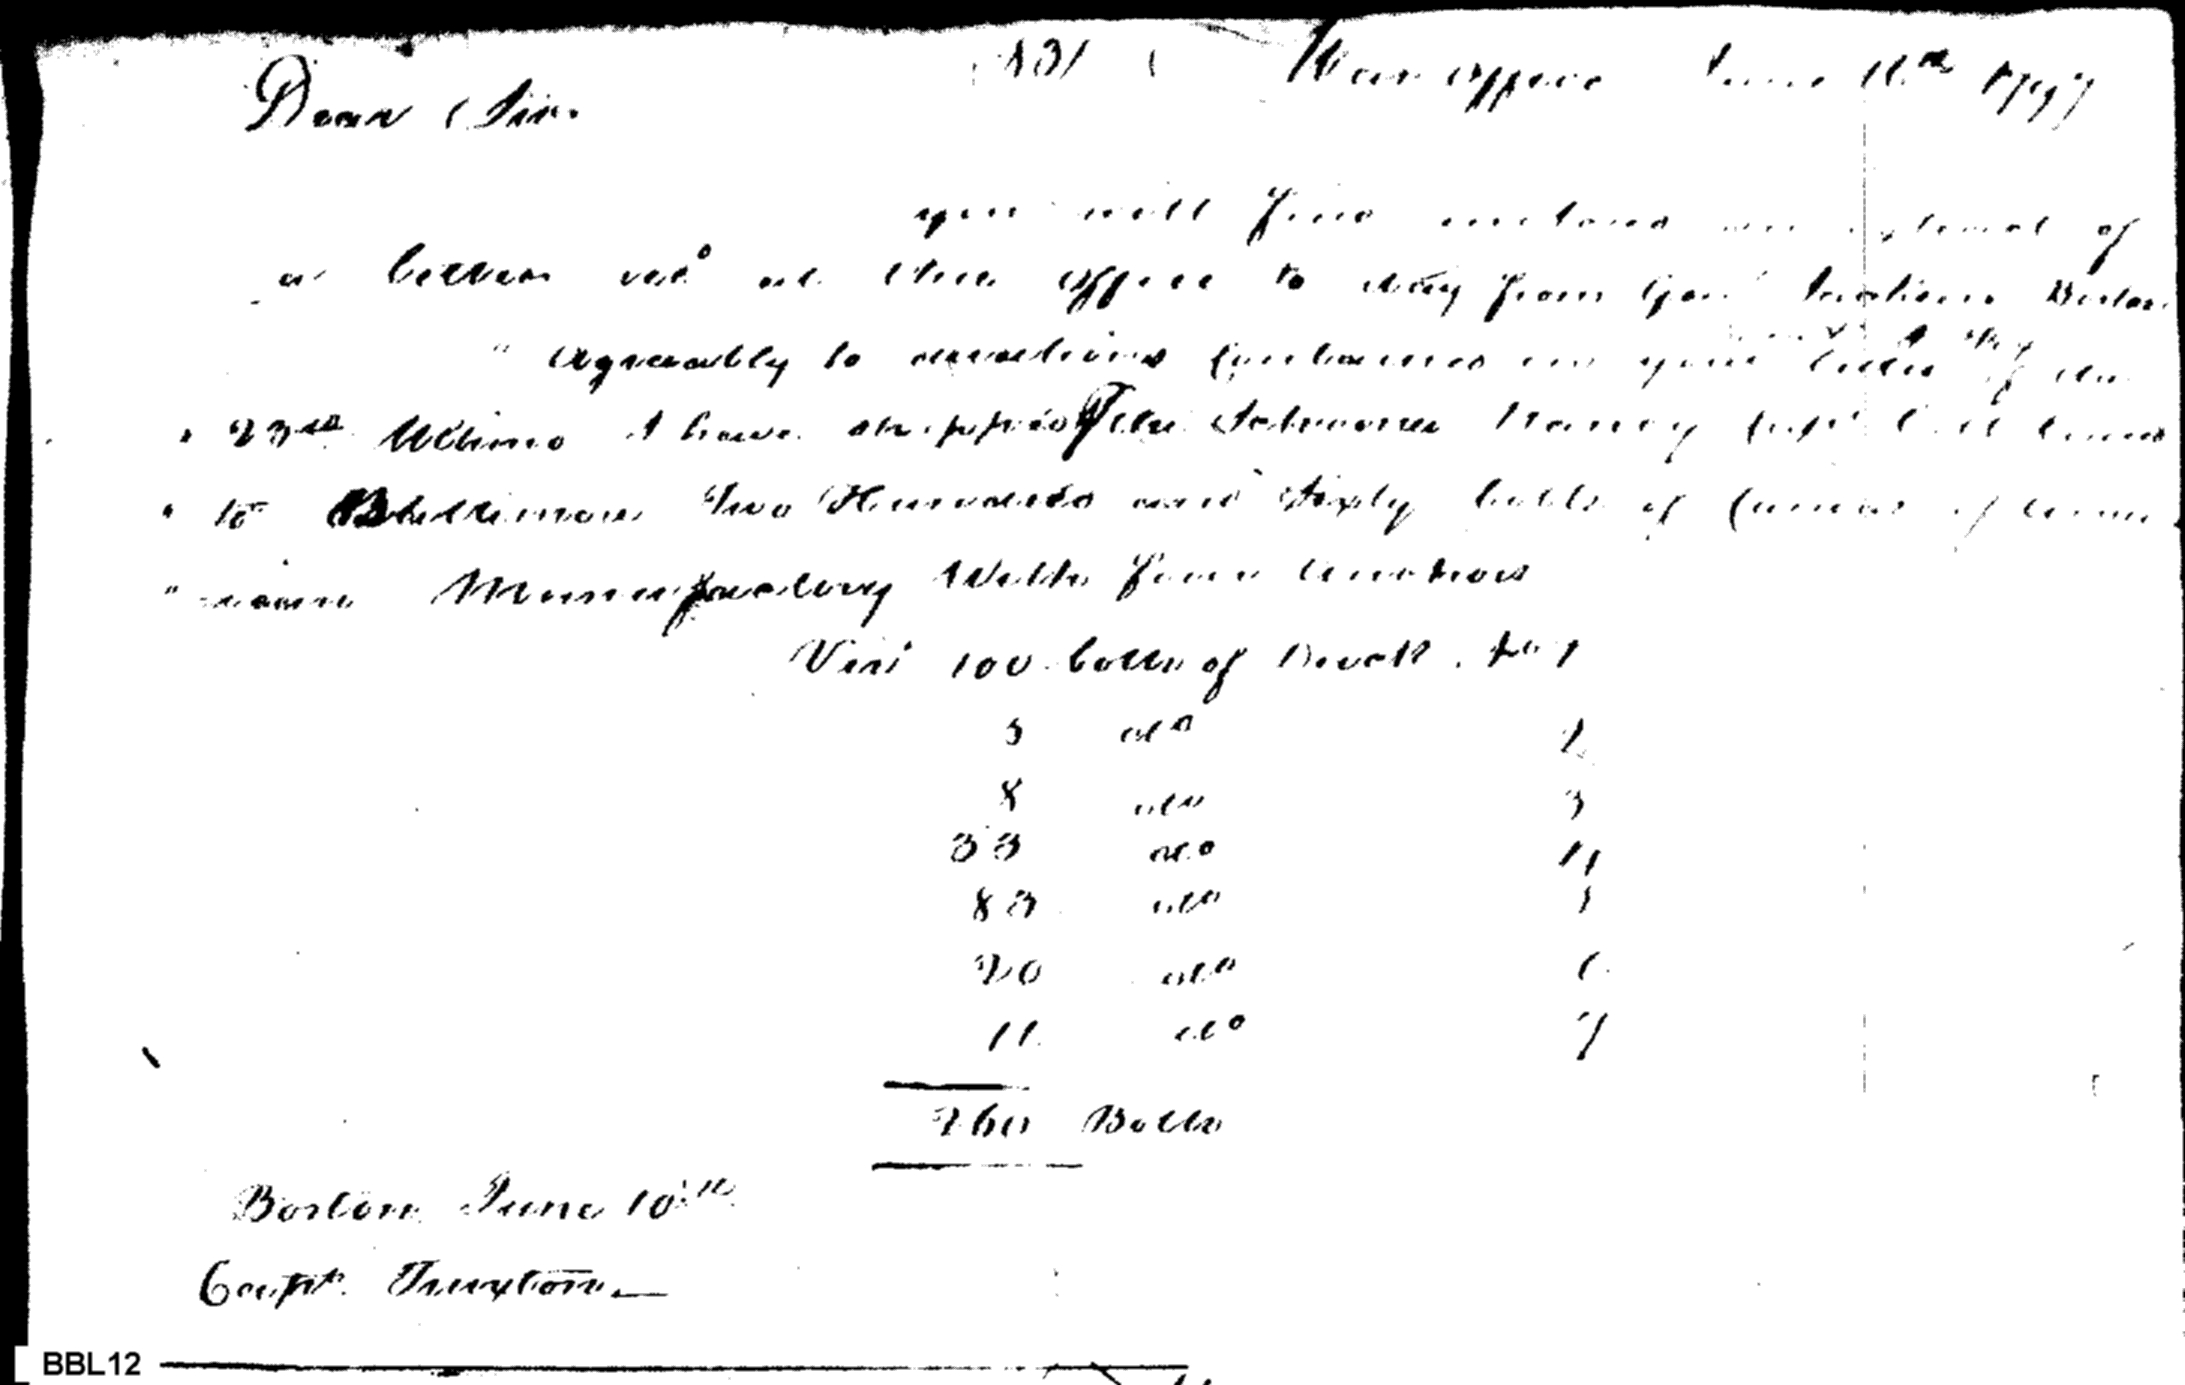 131 War Office June 1797
Dear Sir.
you will find inclosed an extract of
a letter recd at this office to day from Genl Jackson Boston
" Agreeably to directions contained in your letter of the
" 23rd Ultimo I have shipped Pr the Schooner Nancy Capt bound
" to Baltimore Two Hundred and Sixty bolts of Canvas of
" Manufactory With four Anchors
Vizt 100 bolts of Duck. No 1
5 do 2
8 do 3
33 do 4
83 do 5
20 do 6
11 do 7
260 Bolts
Boston June 10th
Captn Truxton
BBL12